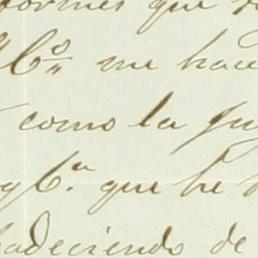 formes que
C.º me hace
como la
y C.ª que he
adeciendo de